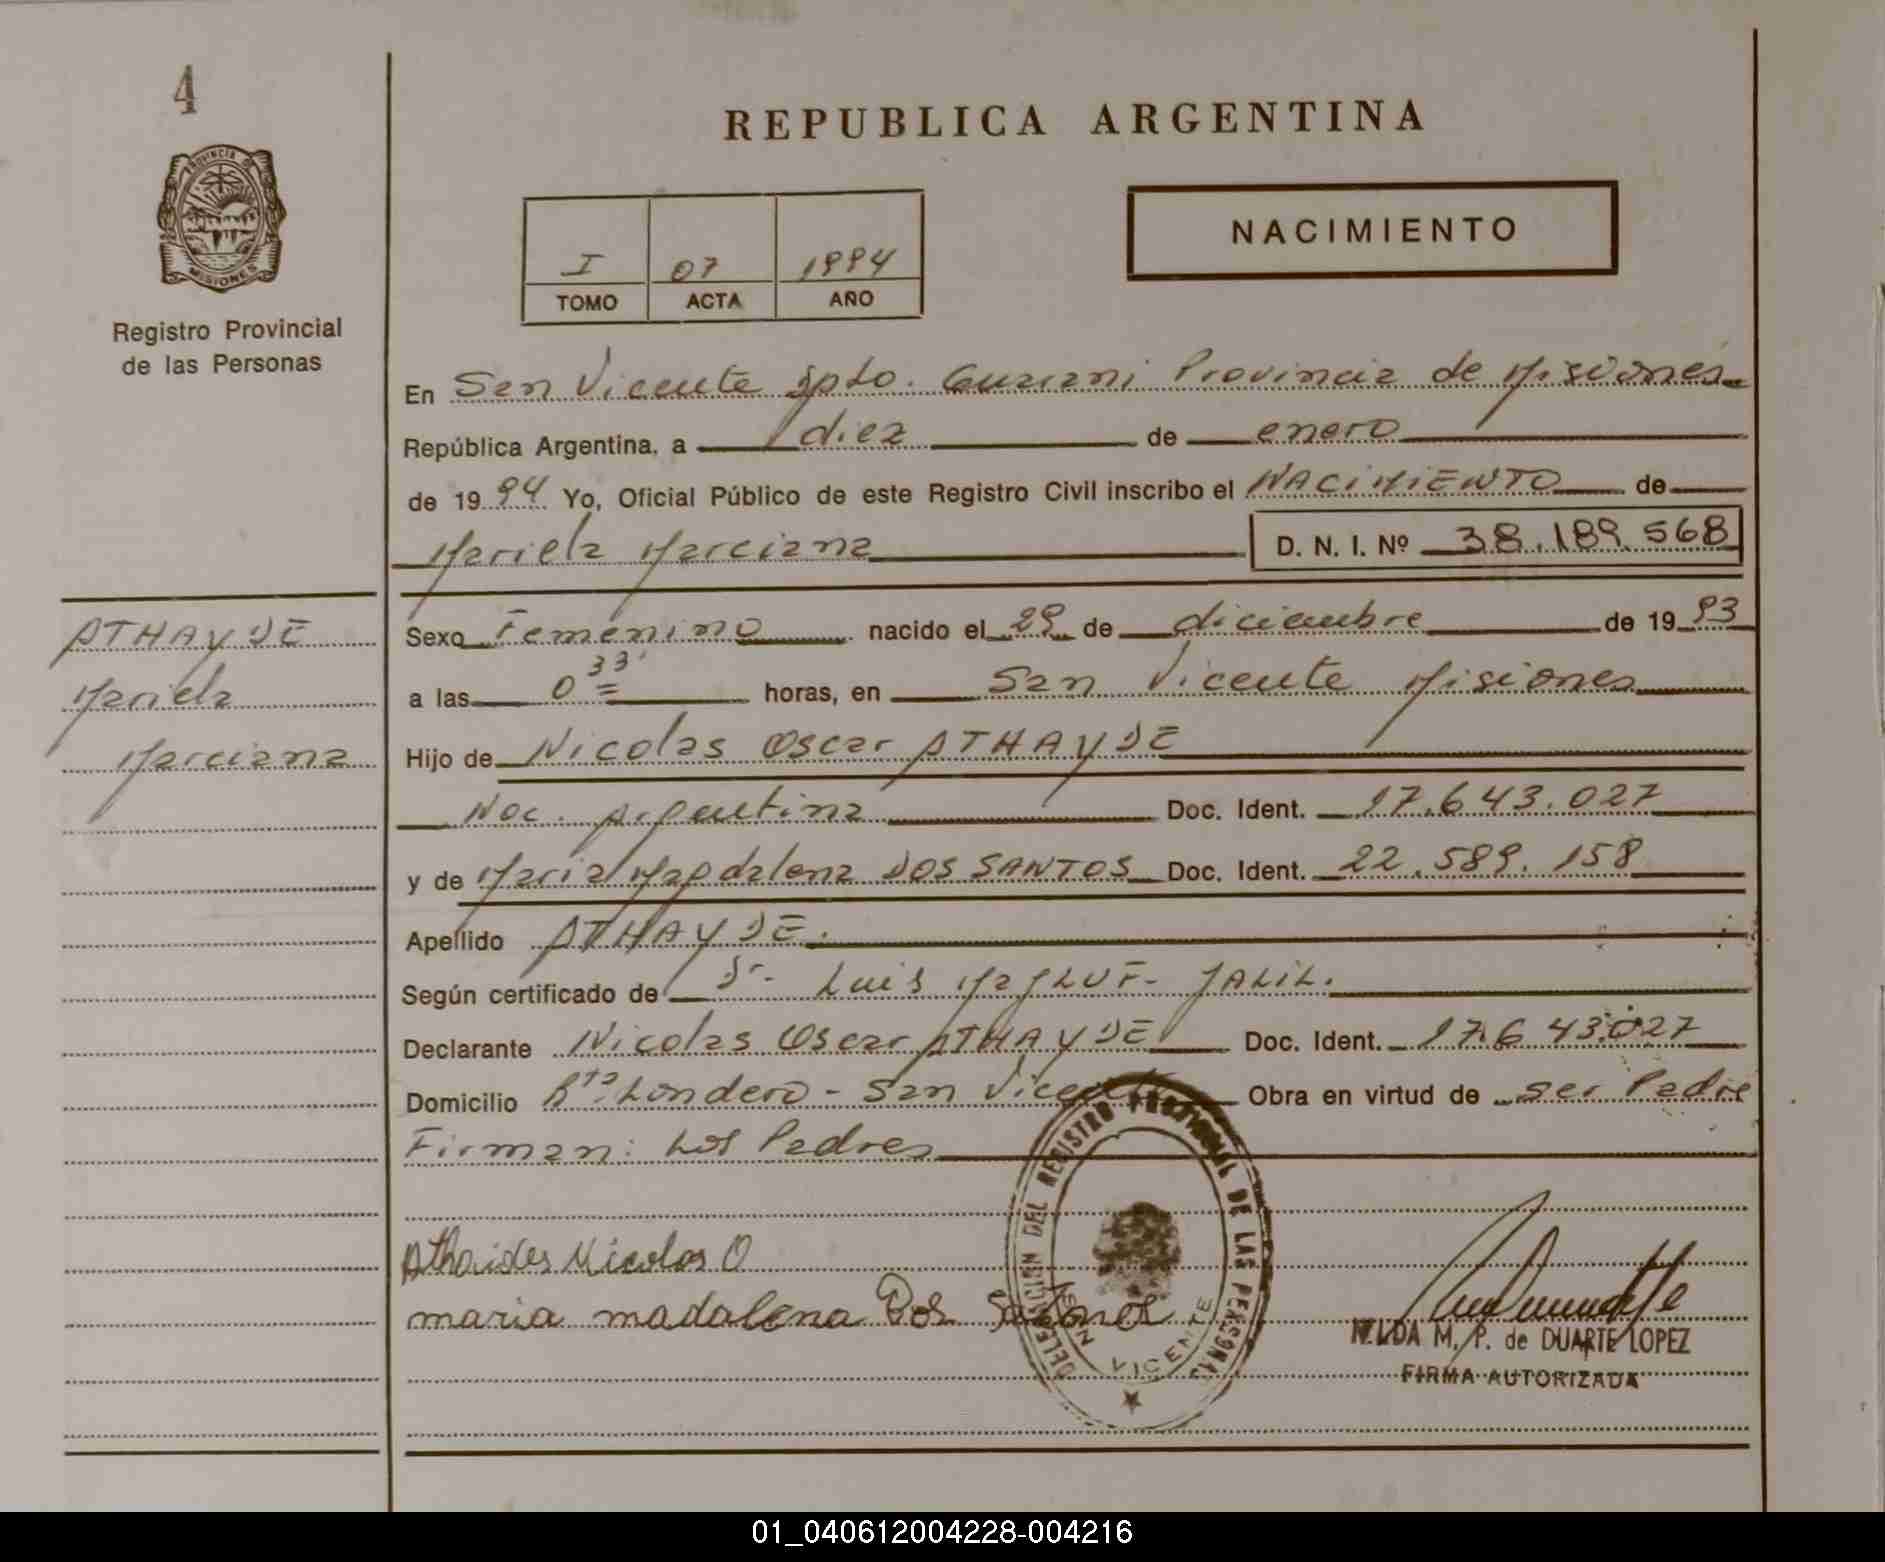 4
REPUBLICA ARGENTINA
PROVINCIA DE
MISIONES
Registro Provincial
de las Personas
I 07 1994
TOMO ACTA AÑO
NACIMIENTO
En San Vicente Dpto. Guarani Provincia de Misiones
República Argentina, a diez de enero
de 1994 Yo, Oficial Público de este Registro Civil inscribo el NACIMIENTO de
Mariela Marciana D. N. I. Nº 38.189.568
ATHAYDE
Mariela
Marciana
Sexo Femenino nacido el 29 de diciembre de 1993
a las 0 33' horas, en San Vicente Misiones
Hijo de Nicolas Oscar ATHAYDE
Nac. Argentina Doc. Ident. 17.643.027
y de Maria Magdalena DOS SANTOS Doc. Ident. 22.589.158
Apellido ATHAYDE.
Según certificado de Dr. Luis JALIL.
Declarante Nicolas Oscar ATHAYDE Doc. Ident. 17.643.027
Domicilio Rta. Londero - San Vicente Obra en virtud de ser Padre
Firman: Los Padres
Nicolas O
maria madalena Dos Santos
DELEGACION DEL REGISTRO PROVINCIAL DE LAS PERSONAS
SAN VICENTE
NILDA M. P. de DUARTE LOPEZ
FIRMA AUTORIZADA
01_040612004228-004216